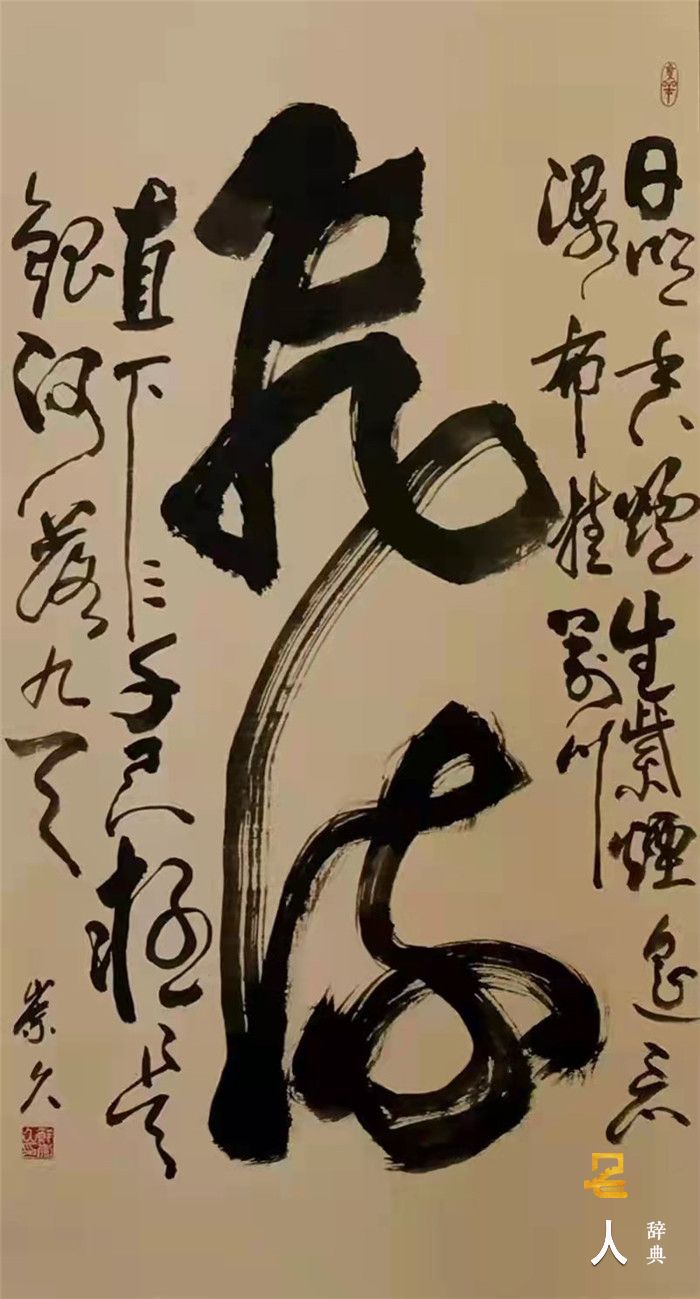 日照香爐生紫煙遙看
瀑布挂前川
飛流
直下三千尺疑是
銀河落九天
崇久
名人
辞典